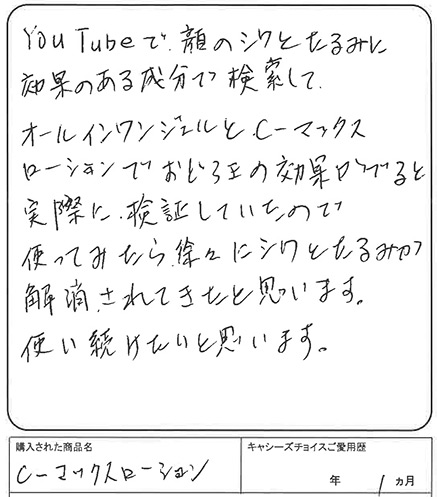 YouTubeで、顔のシワとたるみに
効果のある成分で検索して、
オールインワンジェルと、C-マックス
ローションでおどろきの効果がでると
実際に、検証していたので
使ってみたら、徐々にシワとたるみが
解消されてきたと思います。
使い続けたいと思います。
購入された商品名
C-マックスローション
キャシーズチョイスご愛用歴
年 1 ヵ月